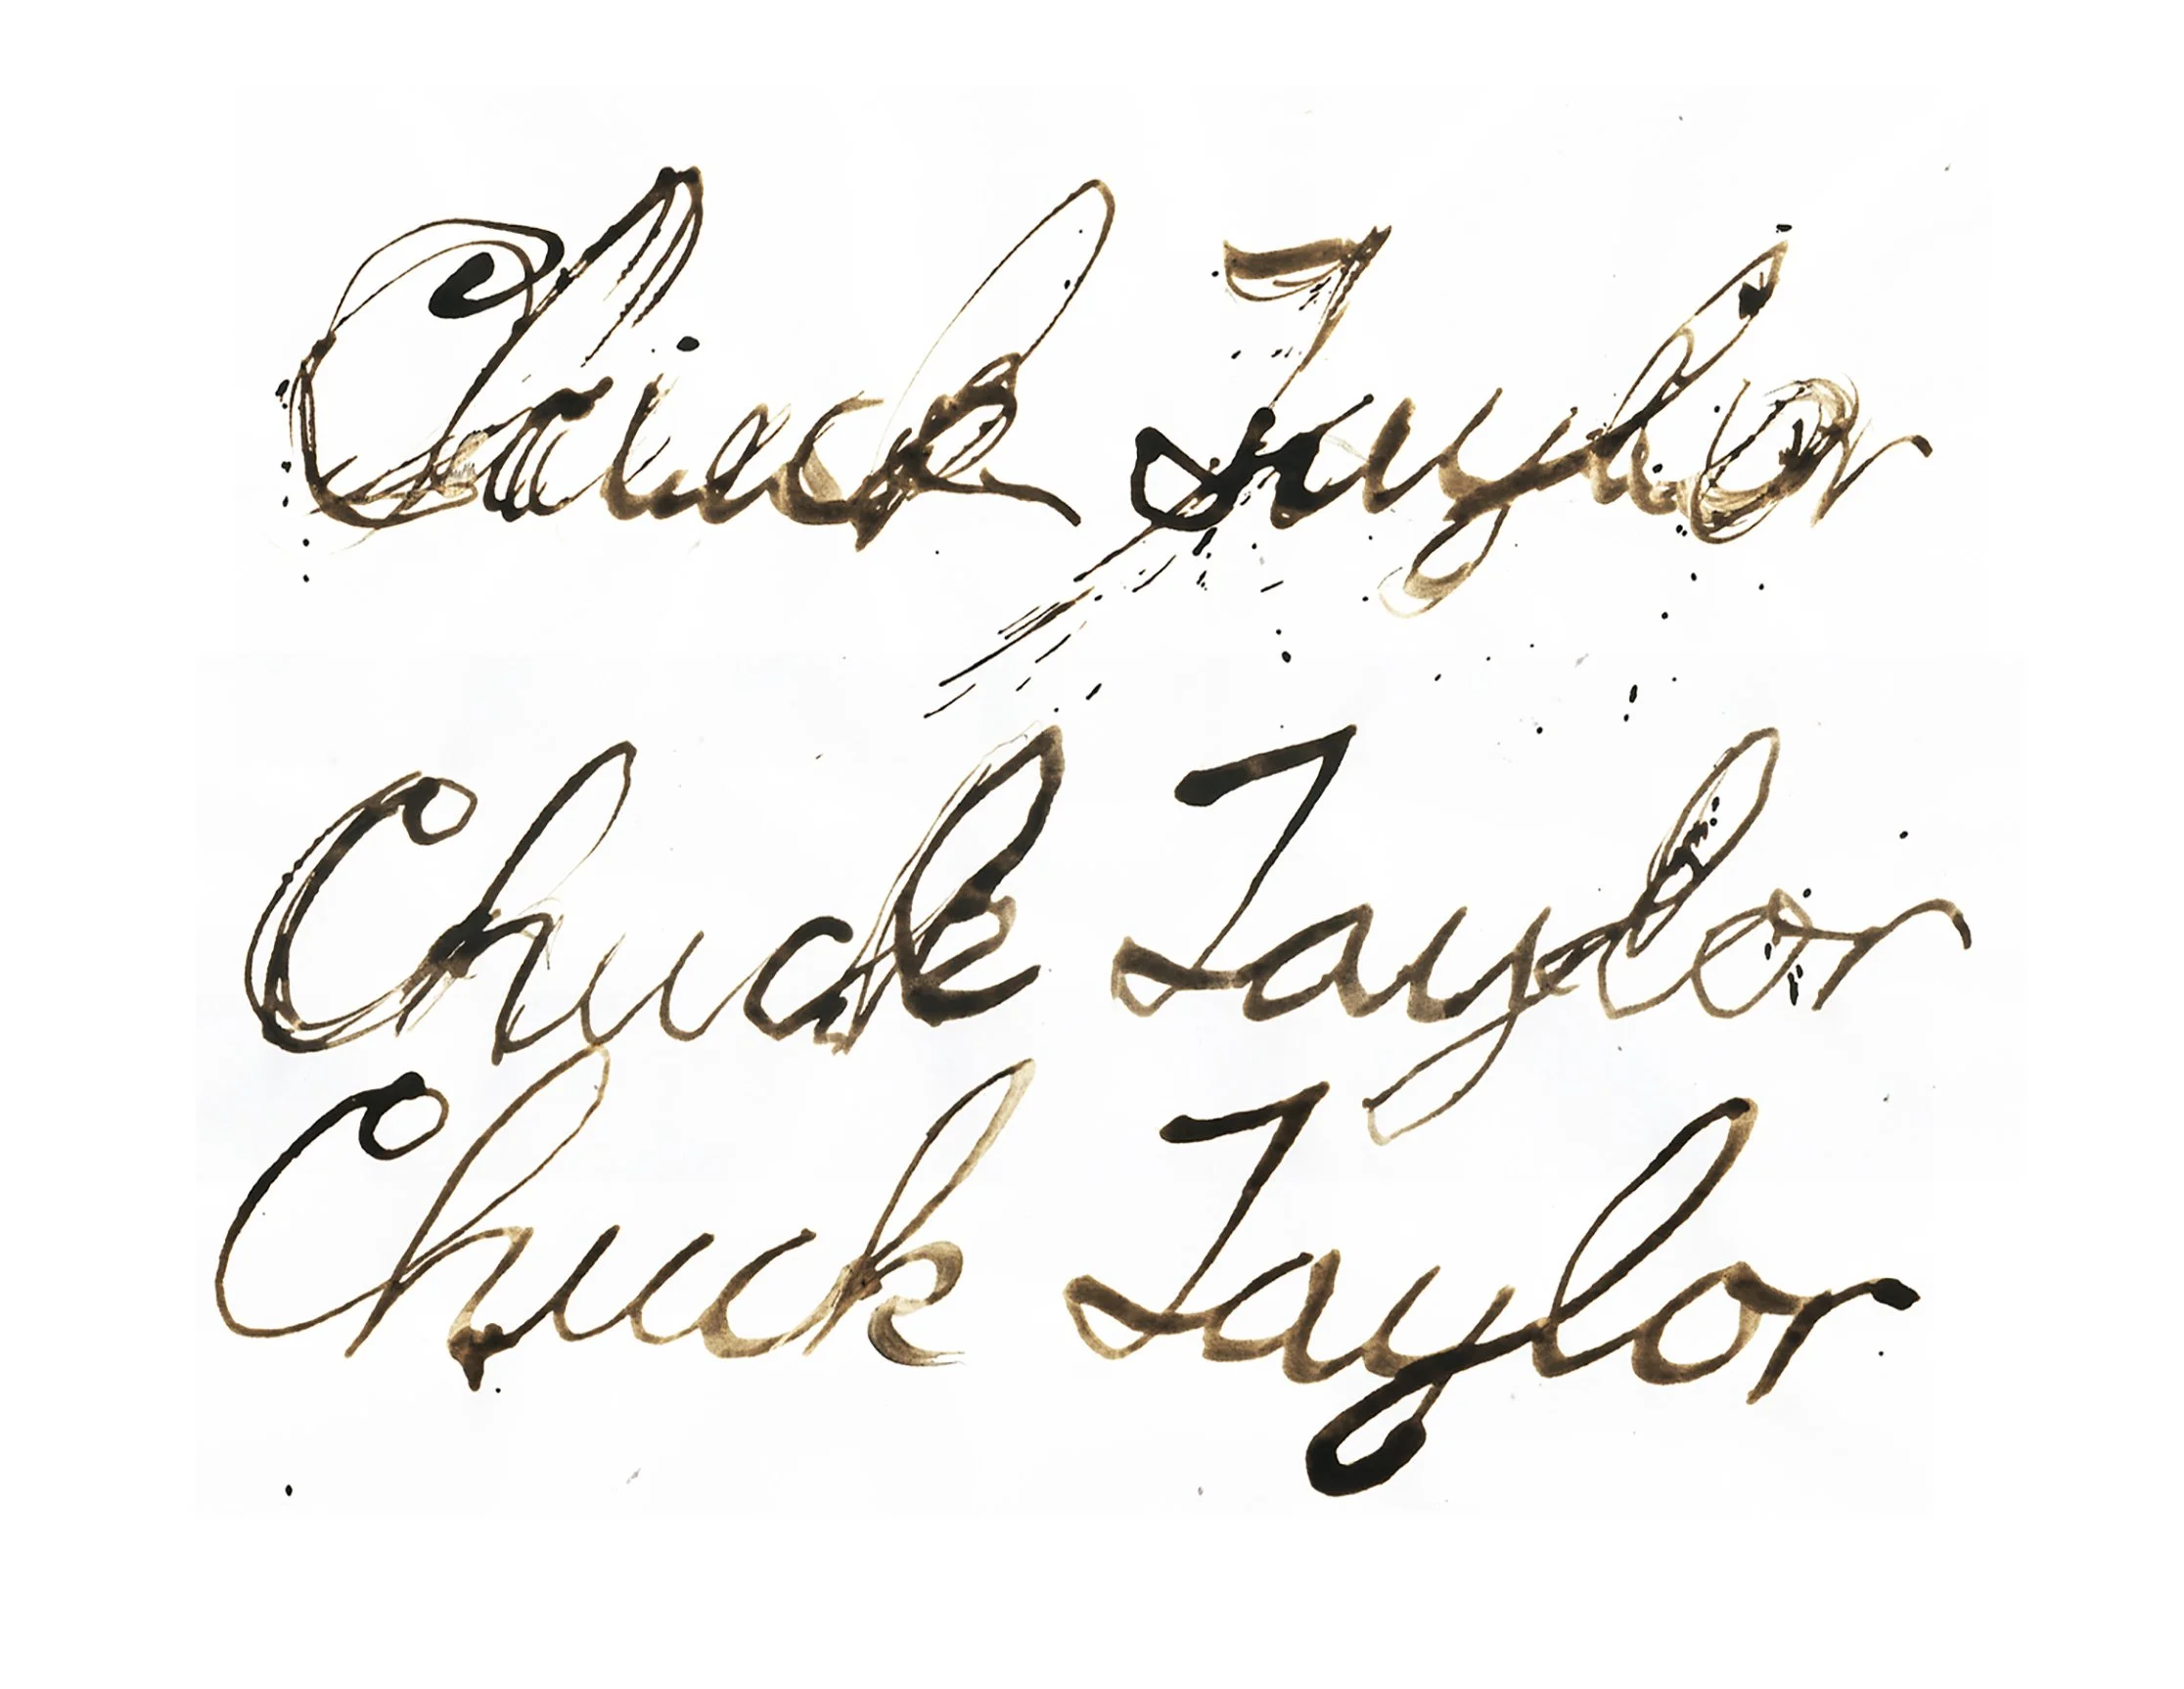 Chuck Taylor
Chuck Taylor
Chuck Taylor